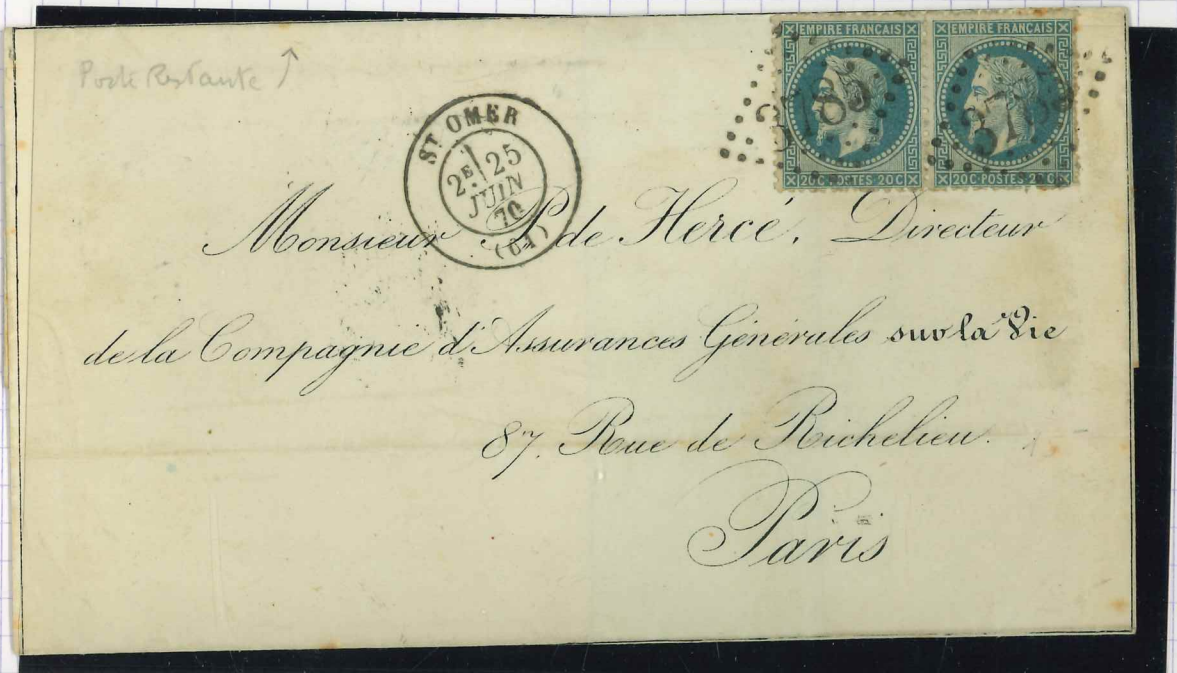 Poste Restante
EMPIRE FRANÇAIS
EMPIRE FRANÇAIS
3785
3785
20C POSTES 20C
20C POSTES 20C
ST OMER
2E 25
JUIN
70
(61)
Monsieur P. de Hercé, Directeur
de la Compagnie d'Assurances Générales sur la Vie
87, Rue de Richelieu.
Paris